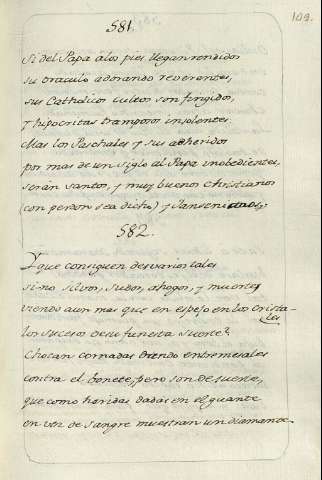 109.
581.
Si del Papa â los pies llegan rendidos
su oraculo adorando reverentes,
sus Catholicos cultos son fingidos,
y hipocritas tramposos insolentes.
Mas los Paschales y sus adheridos
por mas de un siglo al Papa inobedientes,
seran santos, y muy buenos Christianos
(con perdon sea dicho) y Jansenianos.
582.
Y que consiguen desvarios tales
sino silvos, sudor, ahogos, y muerte,
viendo aun mas que en espejo en los Crista-
les
los sucesos de su funesta suerte?
Chocan cornadas dando
contra el bonete, pero son de suerte,
que como heridas dadas en el guante
en vez de sangre muestran un diamante.